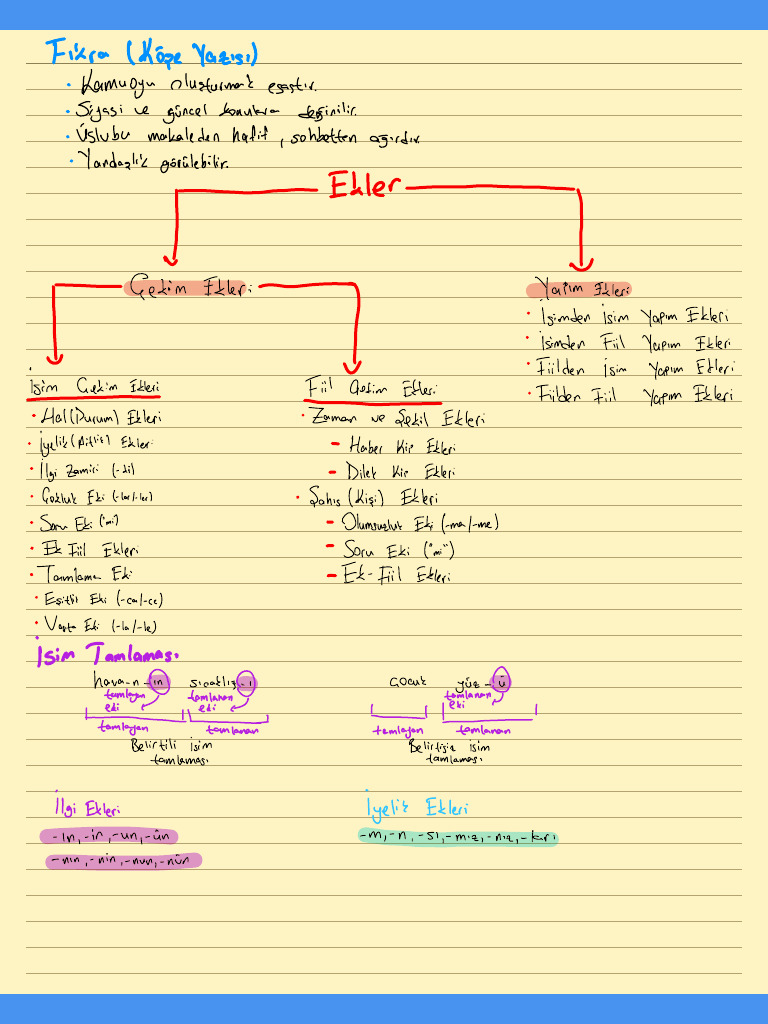 Fıkra (Köşe Yazısı)
• Kamuoyu oluşturmak esastır.
• Siyasi ve güncel konulara değinilir.
• Üslubu makaleden hafif, sohbetten ağırdır.
• Yandaşlık görülebilir.
Ekler
Çekim Ekleri
Yapım Ekleri
• İsimden İsim Yapım Ekleri
• İsimden Fiil Yapım Ekleri
• Fiilden İsim Yapım Ekleri
• Fiilden Fiil Yapım Ekleri
İsim Çekim Ekleri
• Hal (Durum) Ekleri
• İyelik (Aitlik) Ekleri
• İlgi Zamiri (-ki)
• Çokluk Eki (-lar/-ler)
• Soru Eki ("mi")
• Ek Fiil Ekleri
• Tamlama Eki
• Eşitlik Eki (-ca/-ce)
• Vasıta Eki (-la/-le)
Fiil Çekim Ekleri
• Zaman ve Şekil Ekleri
- Haber Kip Ekleri
- Dilek Kip Ekleri
• Şahıs (Kişi) Ekleri
- Olumsuzluk Eki (-ma/-me)
- Soru Eki ("mi")
- Ek-Fiil Ekleri
İsim Tamlaması
hava-n-ın sıcaklığ-ı
tamlayan eki tamlanan eki
tamlayan tamlanan
Belirtili isim
tamlaması
çocuk yüz-ü
tamlanan eki
tamlayan tamlanan
Belirtisiz isim
tamlaması
İlgi Ekleri
-ın, -in, -un, -ün
-nın, -nin, -nun, -nün
İyelik Ekleri
-m, -n, -sı, -mız, -nız, -ları